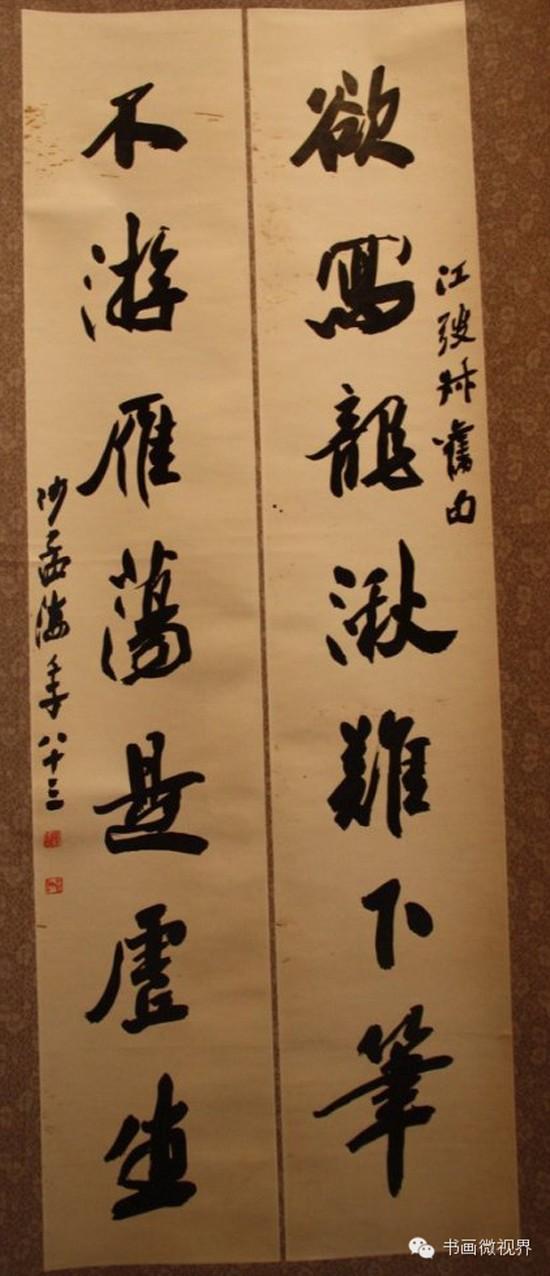 江弢叔舊句
欲寫龍湫難下筆
不游雁蕩是虛生
沙孟海年八十三
书画微视界